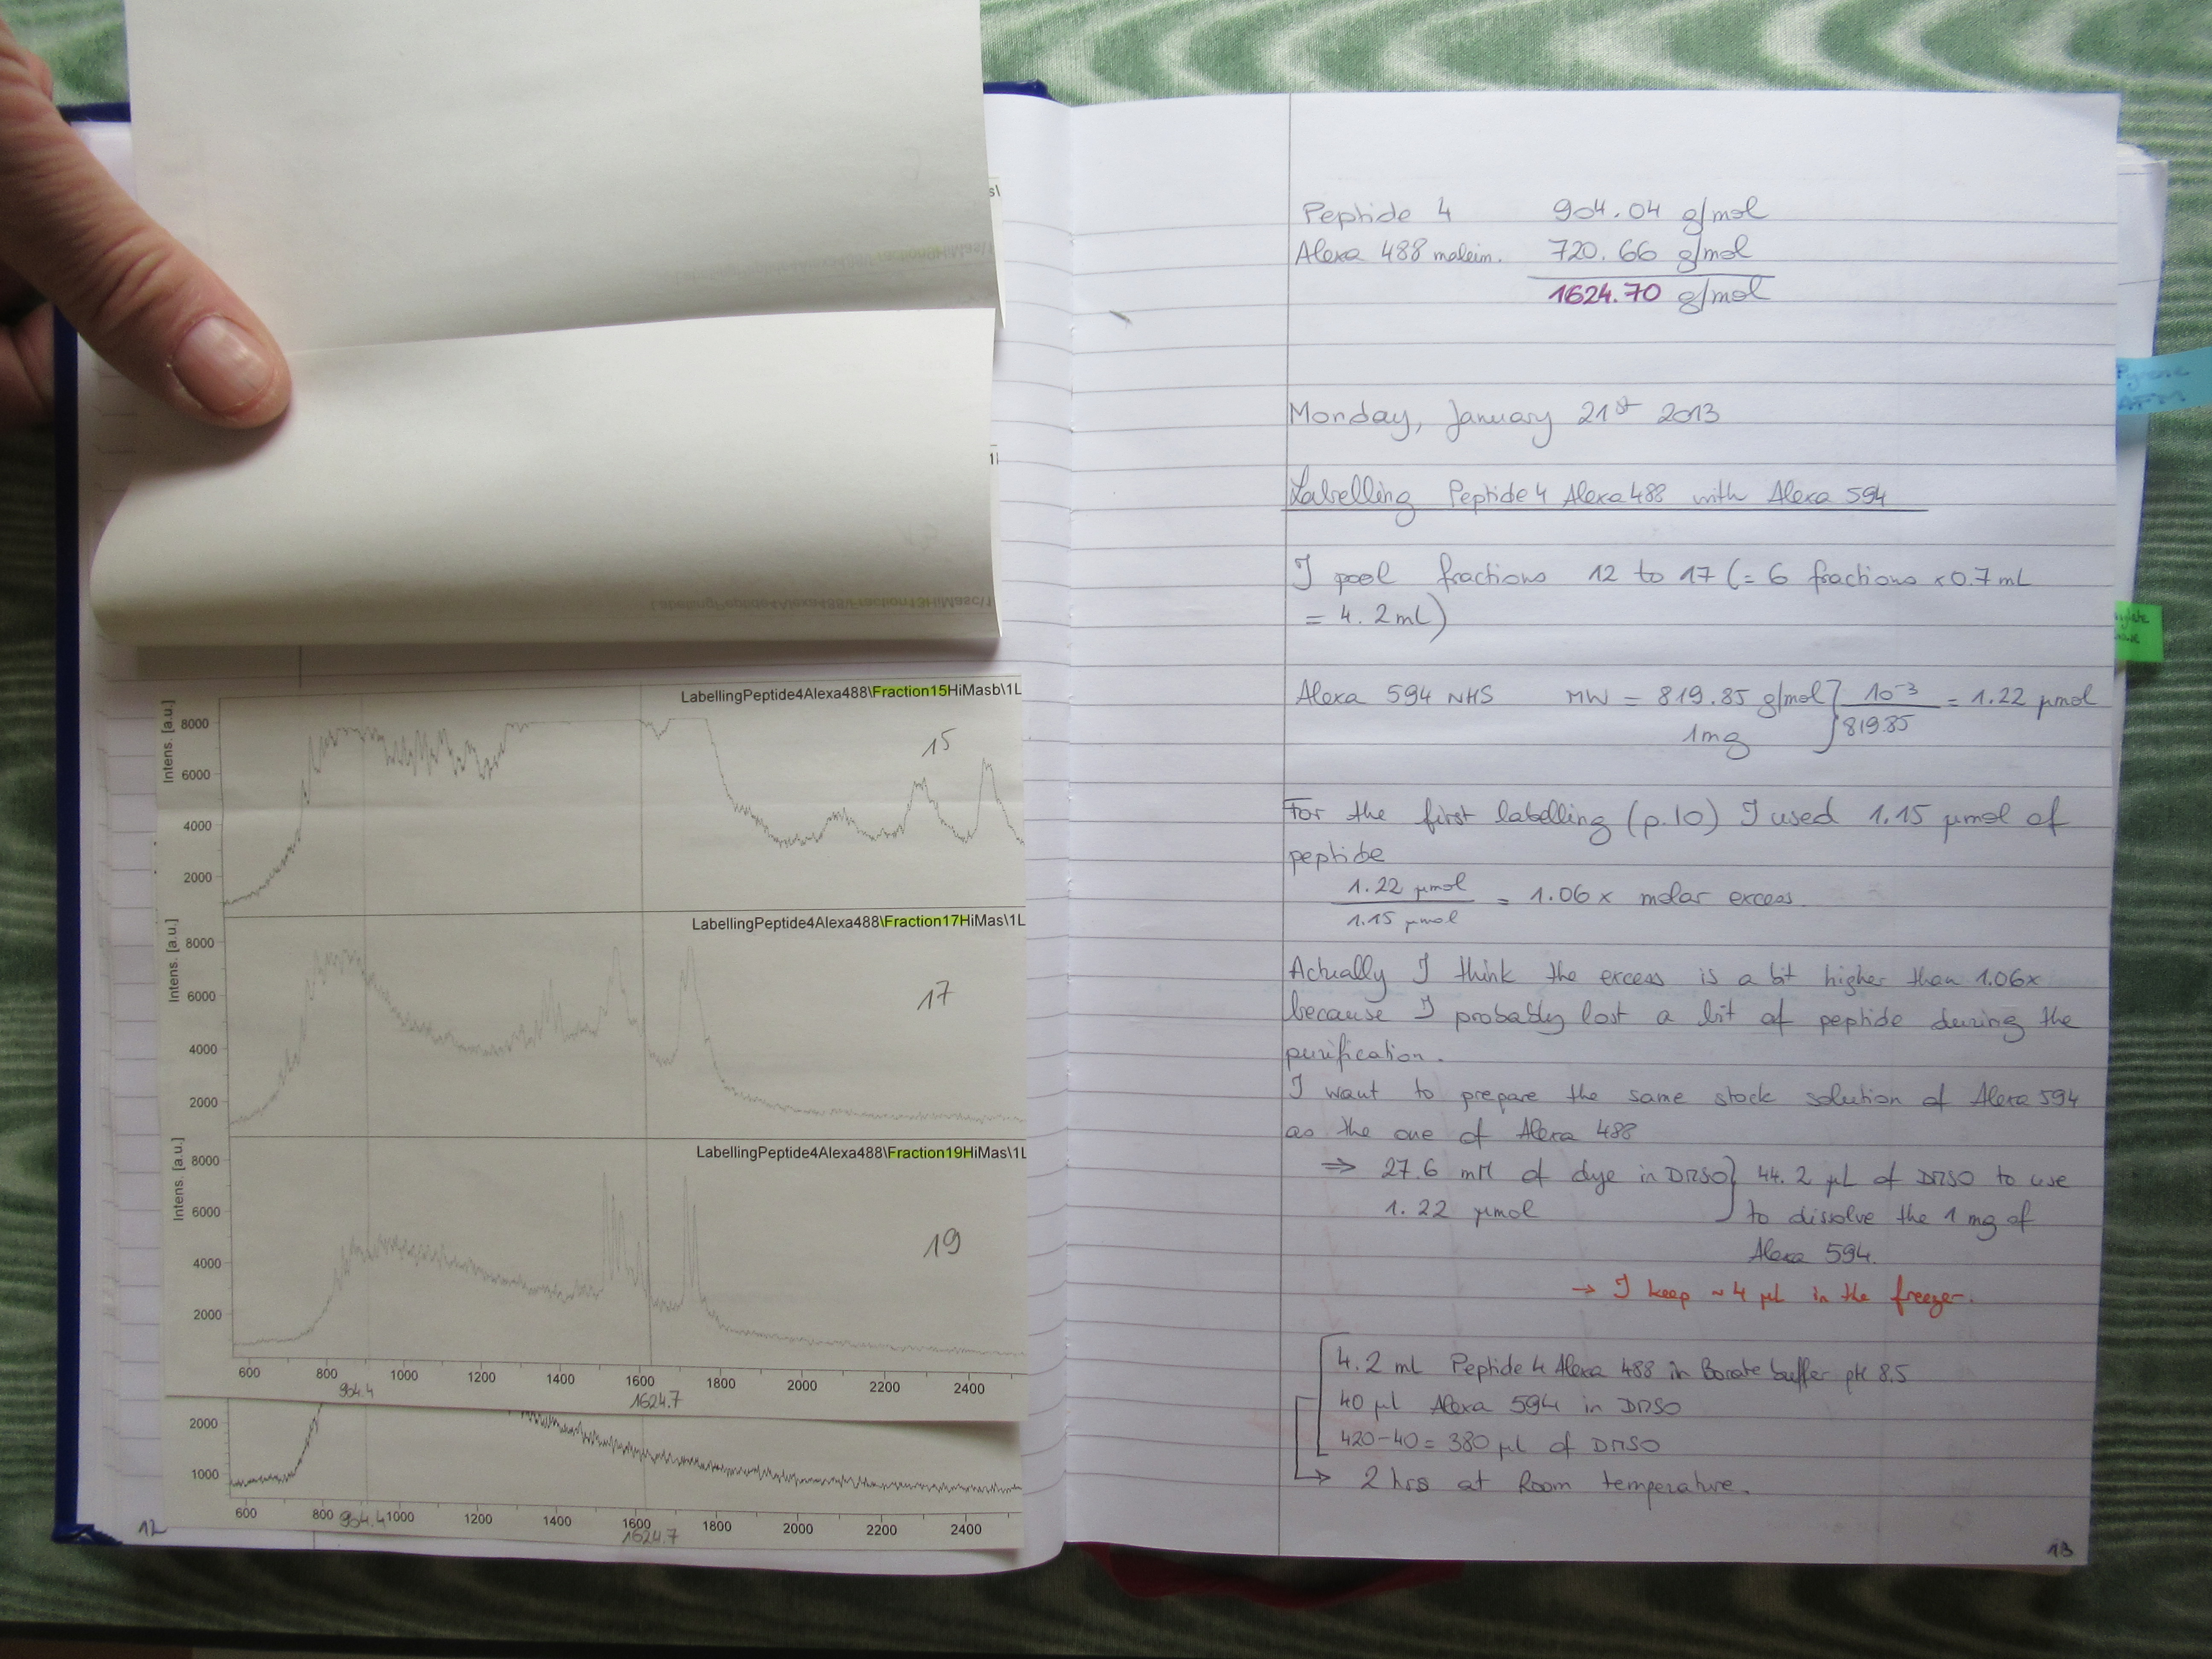 LabellingPeptide4Alexa488\Fraction15HiMasb\1L
Intens. [a.u.]
8000
6000
4000
2000
15
LabellingPeptide4Alexa488\Fraction17HiMas\1L
Intens. [a.u.]
8000
6000
4000
2000
17
LabellingPeptide4Alexa488\Fraction19HiMas\1L
Intens. [a.u.]
8000
6000
4000
2000
19
600 800 1000 1200 1400 1600 1800 2000 2200 2400
904.4 1624.7
2000
1000
600 800 1000 1200 1400 1600 1800 2000 2200 2400
904.4 1624.7
12
Peptide 4 904.04 g/mol
Alexa 488 maleim. 720.66 g/mol
1624.70 g/mol
Monday, January 21st 2013
Labelling Peptide 4 Alexa 488 with Alexa 594
I pool fractions 12 to 17 (= 6 fractions x 0.7 mL
= 4.2 mL)
Alexa 594 NHS MW = 819.85 g/mol } 10-3 / 819.85 = 1.22 µmol
1mg
For the first labelling (p.10) I used 1.15 µmol of
peptide
1.22 µmol / 1.15 µmol = 1.06 x molar excess.
Actually I think the excess is a bit higher than 1.06x
because I probably lost a bit of peptide during the
purification.
I want to prepare the same stock solution of Alexa 594
as the one of Alexa 488
⇒ 27.6 mM of dye in DMSO } 44.2 µL of DMSO to use
1.22 µmol to dissolve the 1 mg of
Alexa 594.
→ I keep ~ 4 µL in the freezer.
4.2 ml Peptide 4 Alexa 488 in Borate buffer pH 8.5
40 µl Alexa 594 in DMSO
420-40 = 380 µl of DMSO
→ 2 hrs at Room temperature.
13